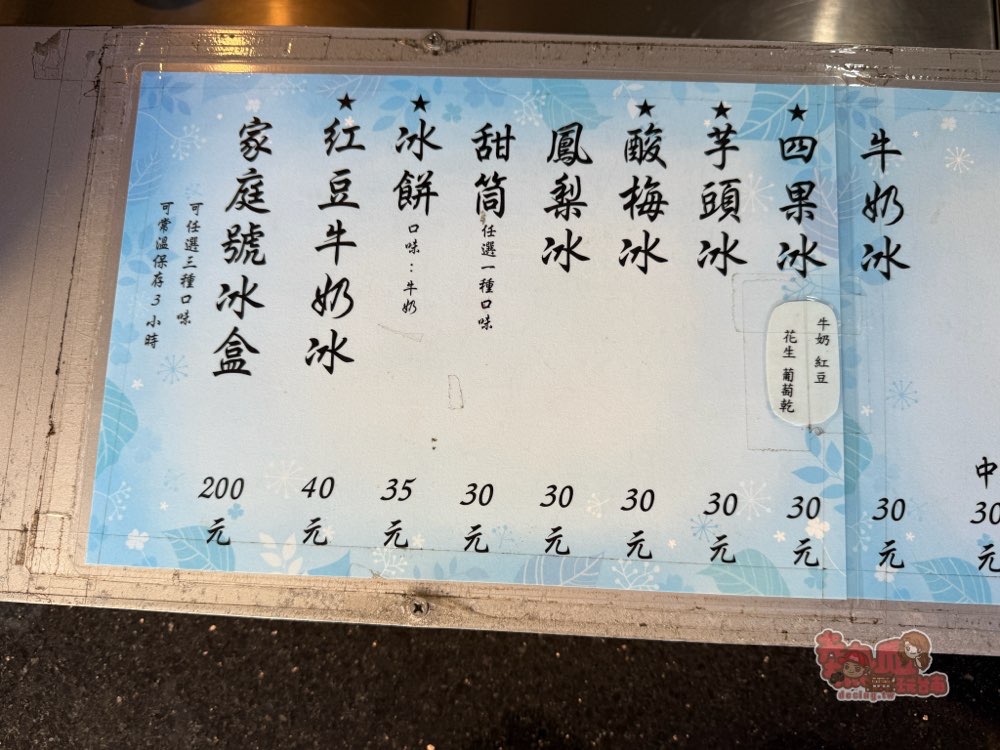 中
30
元
牛奶冰
30
元
★四果冰
牛奶 紅豆
花生 葡萄乾
30
元
★芋頭冰
30
元
★酸梅冰
30
元
鳳梨冰
30
元
甜筒 任選一種口味
30
元
★冰餅 口味：牛奶
35
元
★紅豆牛奶冰
40
元
家庭號冰盒
可任選三種口味
可常溫保存3小時
200
元